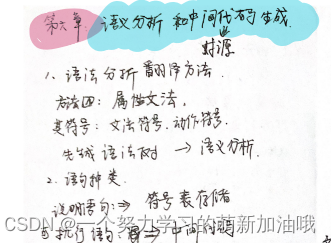 第六章 语义分析和中间代码生成.
1. 语法分析翻译方法.
方法四: 属性文法,
文法符号, 动作符号.
先生成语法树 → 语义分析.
2. 语句种类.
说明语句 ⇒ 符号表存储
执行语句 ⇒ 中间代码
CSDN @一个努力学习的萌新加油哦